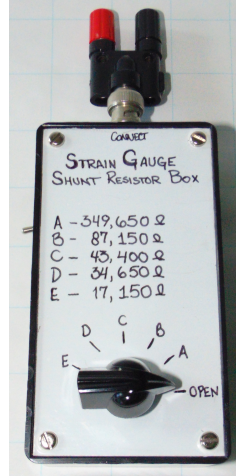 CONNECT
STRAIN GAUGE
SHUNT RESISTOR BOX
A - 349,650 Ω
B - 87,150 Ω
C - 43,400 Ω
D - 34,650 Ω
E - 17,150 Ω
C
D B
E A
OPEN